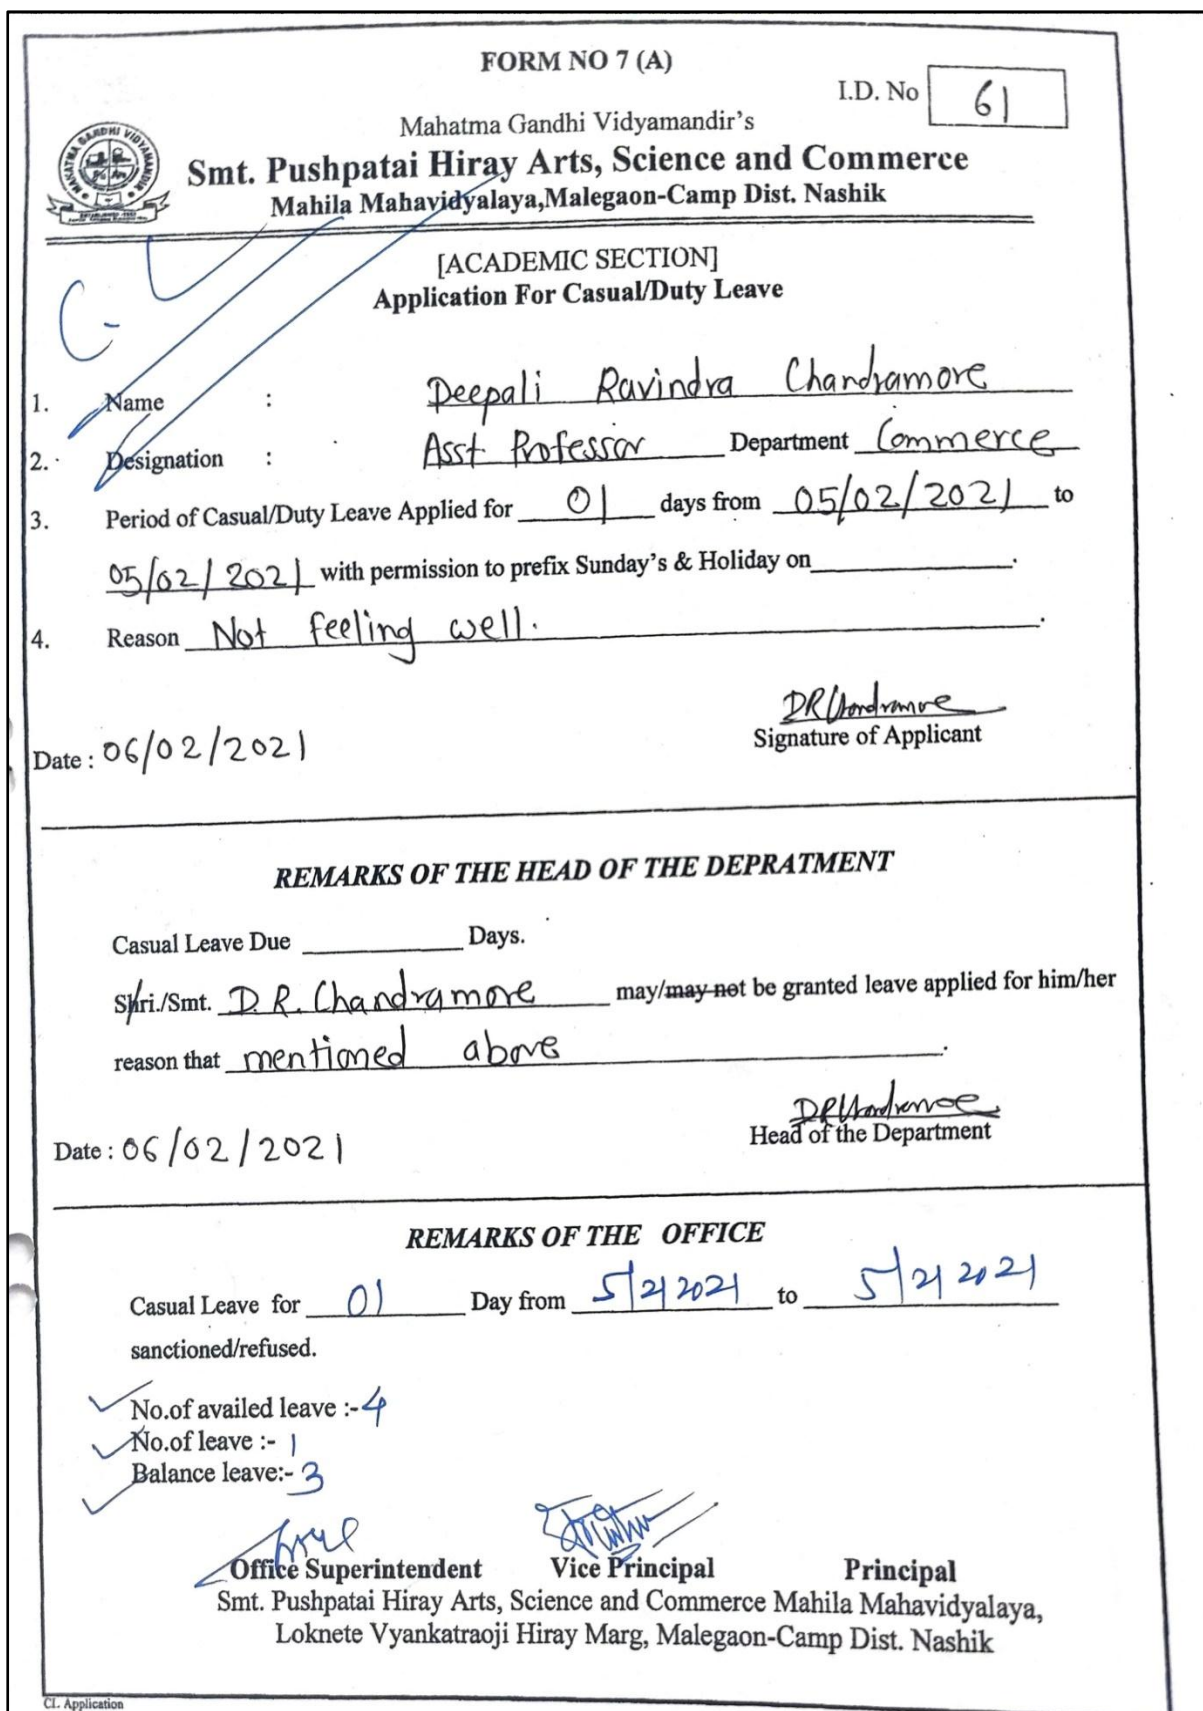 FORM NO 7 (A)
I.D. No 61
Mahatma Gandhi Vidyamandir's
Smt. Pushpatai Hiray Arts, Science and Commerce
Mahila Mahavidyalaya,Malegaon-Camp Dist. Nashik
MAHATMA GANDHI VIDYAMANDIR
C.L
[ACADEMIC SECTION]
Application For Casual/Duty Leave
1. Name : Deepali Ravindra Chandramore
2. Designation : Asst. Professor Department Commerce
3. Period of Casual/Duty Leave Applied for 01 days from 05/02/2021 to
05/02/2021 with permission to prefix Sunday's & Holiday on .
4. Reason Not feeling well.
DRChandramore
Signature of Applicant
Date : 06/02/2021
REMARKS OF THE HEAD OF THE DEPRATMENT
Casual Leave Due Days.
Shri./Smt. D.R. Chandramore may/may not be granted leave applied for him/her
reason that mentioned above .
DRChandramore
Head of the Department
Date : 06/02/2021
REMARKS OF THE OFFICE
Casual Leave for 01 Day from 5/2/2021 to 5/2/2021
sanctioned/refused.
No.of availed leave :- 4
No.of leave :- 1
Balance leave:- 3
Office Superintendent Vice Principal Principal
Smt. Pushpatai Hiray Arts, Science and Commerce Mahila Mahavidyalaya,
Loknete Vyankatraoji Hiray Marg, Malegaon-Camp Dist. Nashik
CL Application